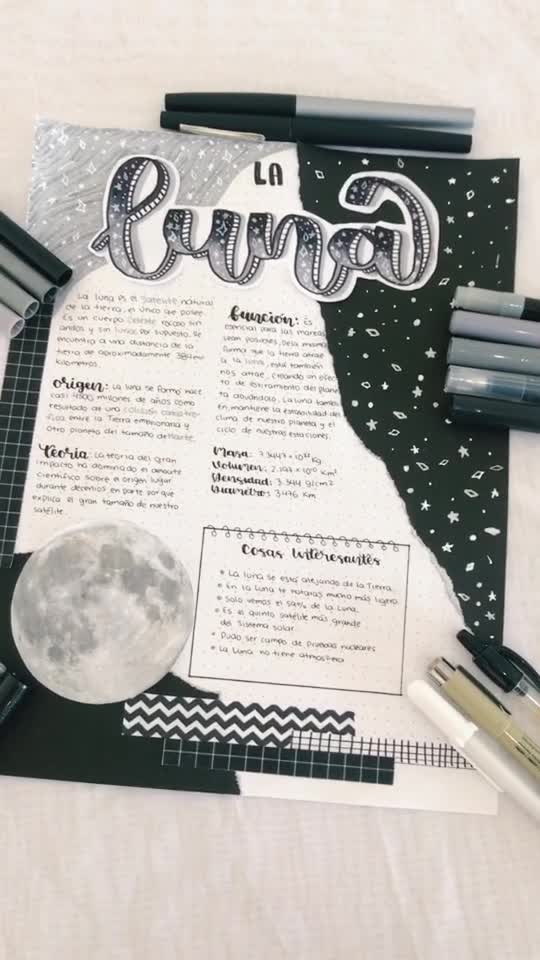 LA
luna
La luna es el satélite natural
de la tierra, el único que posee.
Es un cuerpo celeste rocoso sin
anillos y sin lunas por supuesto. Se
encuentra a una distancia de la
tierra de aproximadamente 384
kilómetros.
Origen: La luna se formo hace
casi 4500 millones de años como
resultado de una colisión catastro-
fica entre la Tierra embrionaria y
otro planeta del tamaño de Marte.
Teoría: La teoría del gran
impacto ha dominado el debate
científico sobre el origen lugar
durante decenios en parte por que
explica el gran tamaño de nuestro
satélite.
Función: Es
esencial para las mareas
sean posibles. De la misma
forma que la tierra atrae
a la luna, esta también
nos atrae, creando un efec
to de estiramiento del plane
ta ayudándolo. La luna tambi
én, mantiene la estabilidad del
clima de nuestro planeta y el
ciclo de nuestras estaciones.
Masa: Kg
Volumen: Km³
Densidad: 3.344 g/cm³
Diametro: 3476 Km
Cosas Interesantes
La luna se está alejando de la Tierra.
En la Luna te notarías mucho más ligero.
Solo vemos el 59% de la Luna.
Es el quinto satélite más grande
del Sistema solar.
Pudo ser campo de pruebas nucleares
La Luna no tiene atmosfera